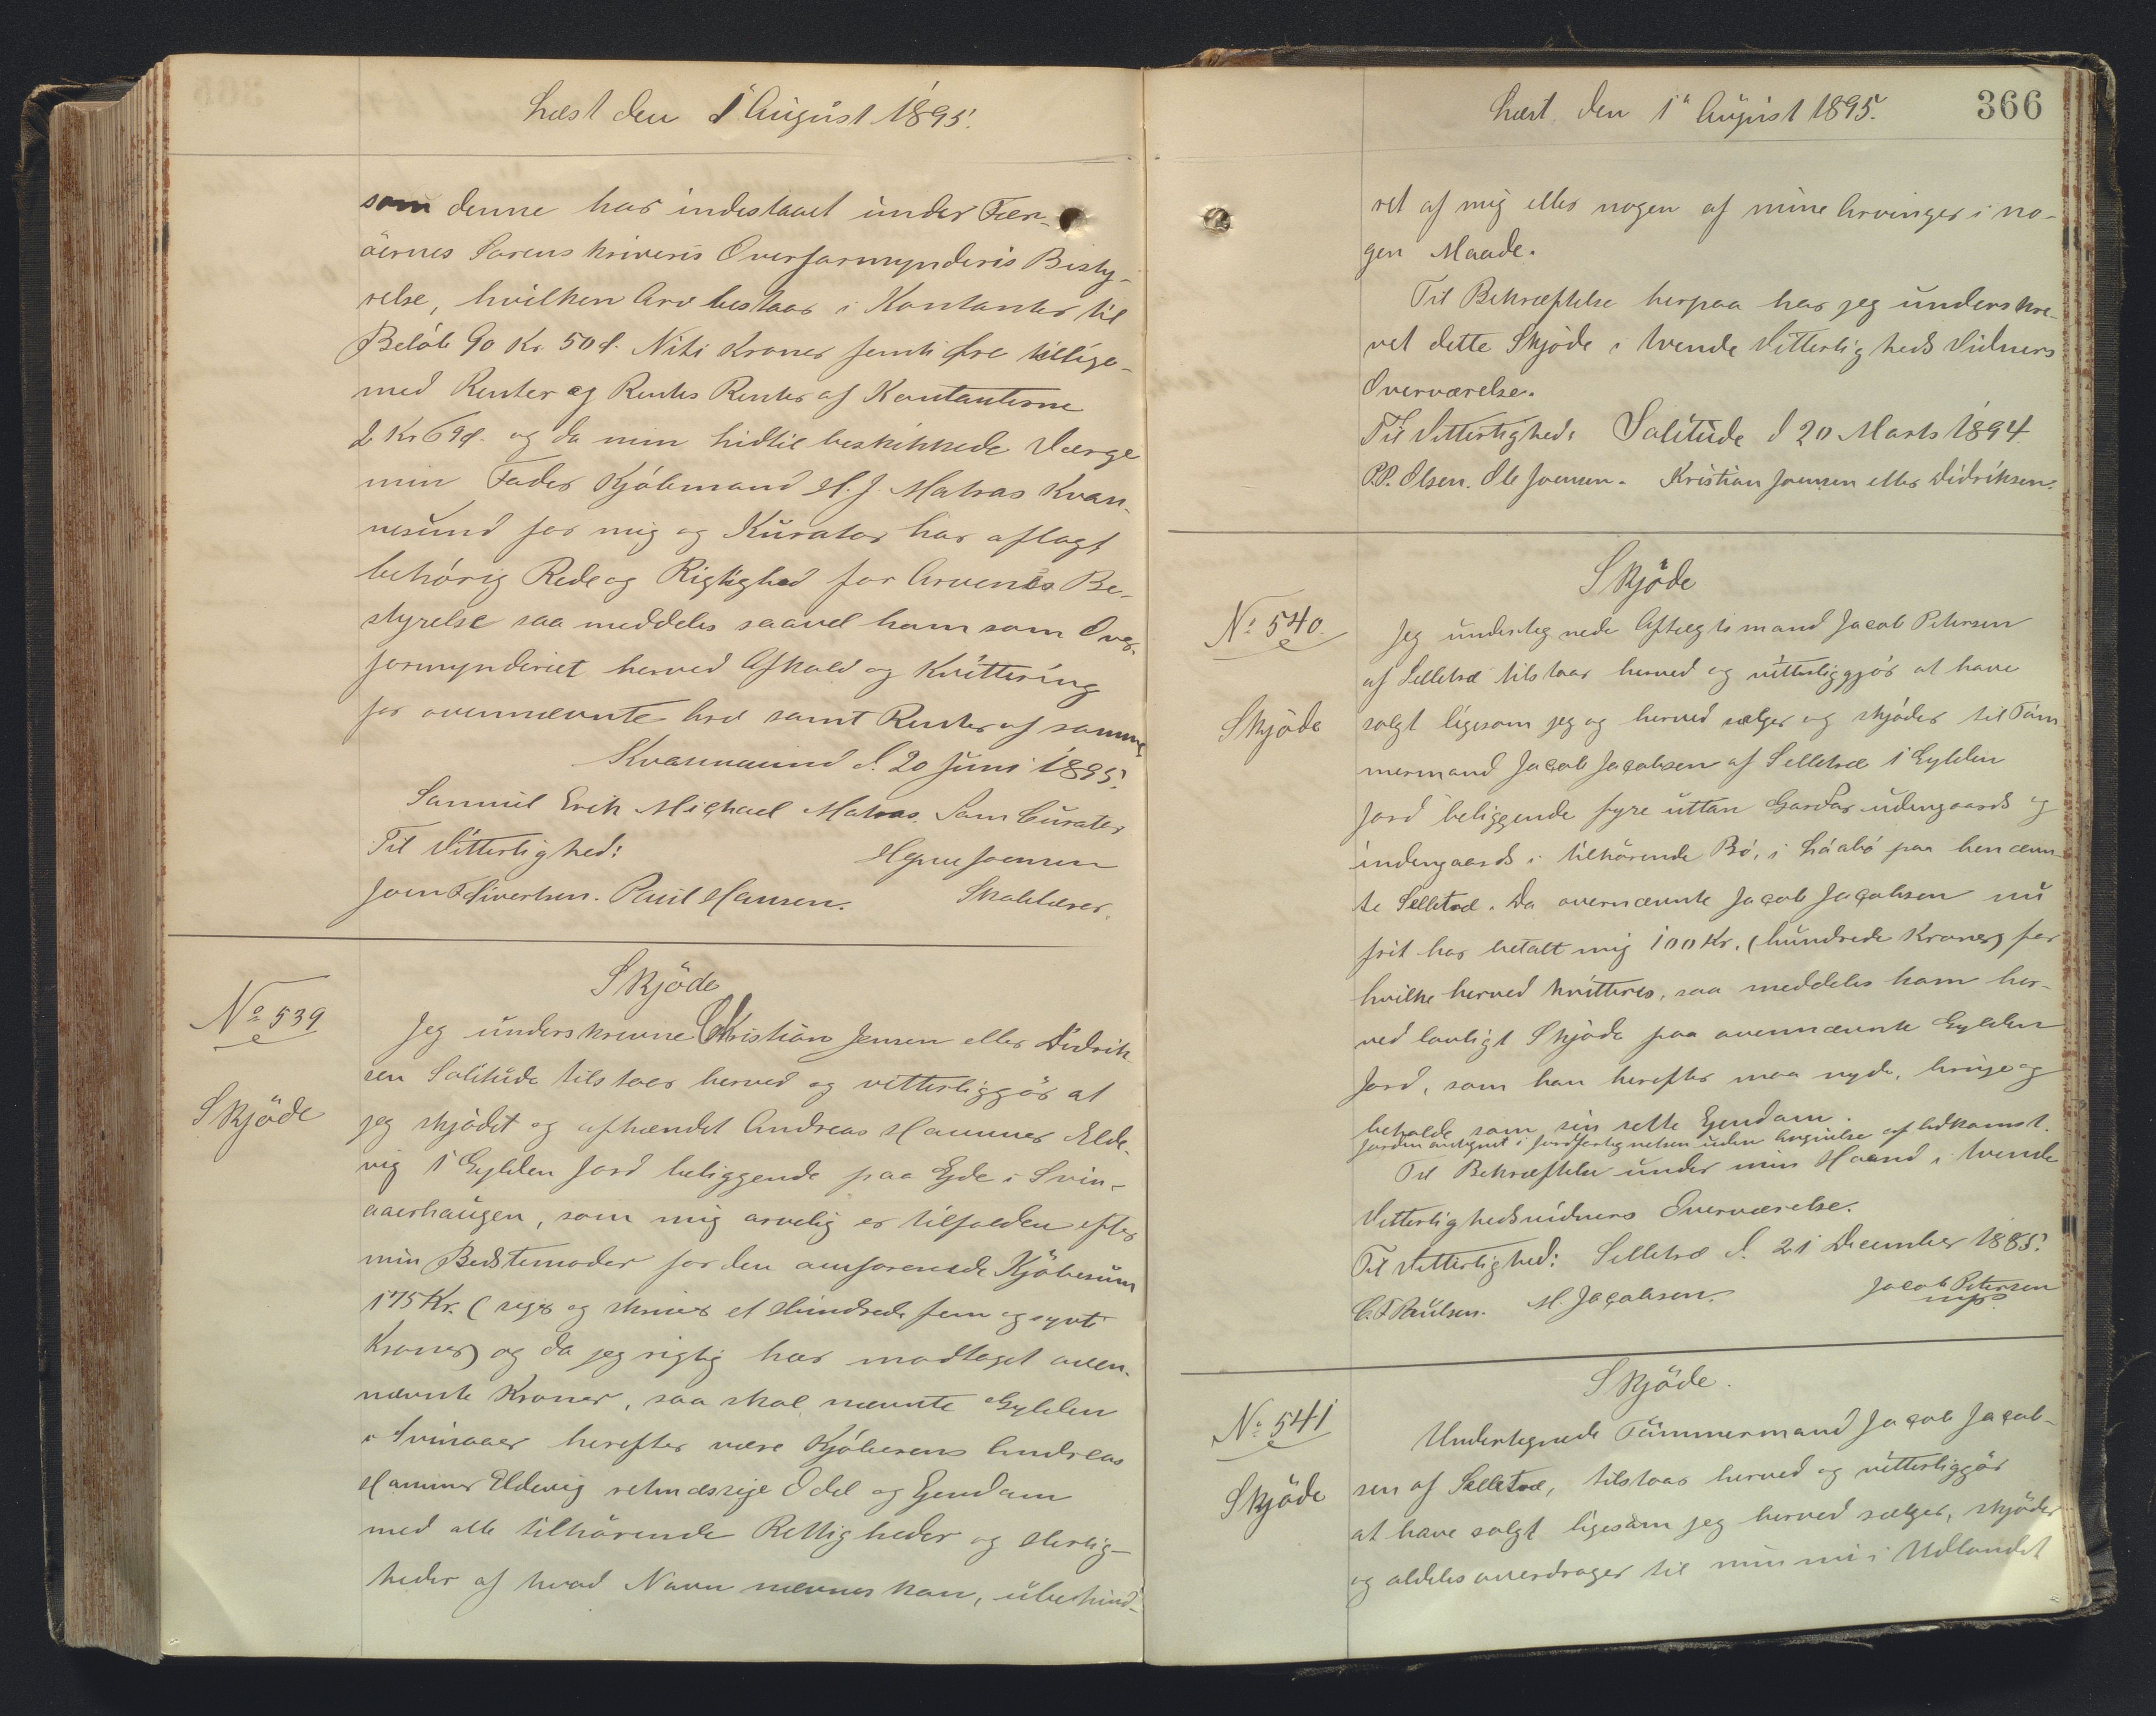 Læst den 1 August 1895.
som denne har indestaaet under Fær-
öernes Sorenskriveris Overformynderis Besty-
relse, hvilken Arv bestaar i Kontanter til
Beløb 90 Kr. 50 Ø. Niti Kroner femti Øre tillige-
med Renter og Rentes Renter af Kontanterne
2 Kr 69 Ø. og da min hidtil beskikkede Værge
min Fader Kjöbmand H. J. Matras Kvan-
nesund for mig og Kurator har aflagt
behörig Rede og Rigtighed for Arvens Be-
styrelse saa meddeles saavel ham som Over-
formynderiet herved Afkald og Kvittering
for ovennævnte Arv samt Renter af samme
Kvannesund d. 20 Juni 1895.
Samuel Erik Michael Matras Som Curator
Til Vitterlighed:
Joensen
Sivertsen. Poul Hansen. Skolelærer.
Skjöde
No 539
Skjöde
Jeg underskrevne Kristian Jensen eller Didrik
sen Solitude tilstaar herved og vitterliggör at
jeg skjödet og afhændet Andreas Hammer Elde-
vig 1 Gylden Jord beliggende paa Ejde i Svin-
aaerhaugen, som mig arvelig er tilfalden efter
min Bedstemoder for den omforenede Kjöbesum
175 Kr. (siger og skriver et Hundrede fem og syvti
Kroner) og da jeg rigtig har modtaget oven-
nævnte Kroner, saa skal nævnte Gylden
i Svinaaer herefter være Kjöberens Andreas
Hammer Eldevig retmæssige Odel og Ejendom
med alle tilhörende Rettigheder og Herlig-
heder af hvad Navn nævnes kan, ubehind-
Læst den 1 August 1895.
366
ret af mig eller nogen af mine Arvinger i no-
gen Maade.
Til Bekræftelse herpaa har jeg underskre-
vet dette Skjöde i tvende Vitterligheds Vidners
Overværelse.
Til Vitterlighed: Solitude d 20 Marts 1894
P.P. Olsen. Ole Joensen. Kristian Joensen eller Didriksen.
Skjöde
No 540.
Skjöde
Jeg undertegnede Aftægtsmand Jacob Petersen
af Selletræ tilstaar herved og vitterliggjör at have
solgt ligesom jeg og herved sælger og skjöder til Töm
mermand Jacob Jacobsen af Selletræ 1 Gylden
Jord beliggende fyre uttan Gardar udengaards og
indengaards i tilhörende Bö, i Láabö paa benævn
te Selletræ. Da overnævnte Jacob Jacobsen nu
frit har betalt mig 100 Kr. (hundrede Kroner) for
hvilke herved kvitteres, saa meddeles ham her-
ved lovligt Skjöde paa ovennævnte Gylden
Jord, som han herefter maa nyde, bruge og
beholde som sin rette Ejendom.
Jorden antegnet i Jordfortegnelsen uden Angivelse af Adkomst.
Til Bekræftelse under min Haand i tvende
Vitterlighedsvidners Overværelse.
Til Vitterlighed: Selletræ d. 21 December 1885.
C. F. Poulsen. M. Jacobsen. Jacob Petersen
mp
Skjöde.
No 541
Skjöde
Undertegnede Tömmermand Jacob Jacob-
sen af Selletræ, tilstaar herved og vitterliggör
at have solgt ligesom jeg herved sælger, skjöder
og aldeles overdrager til min nu i Udlandet